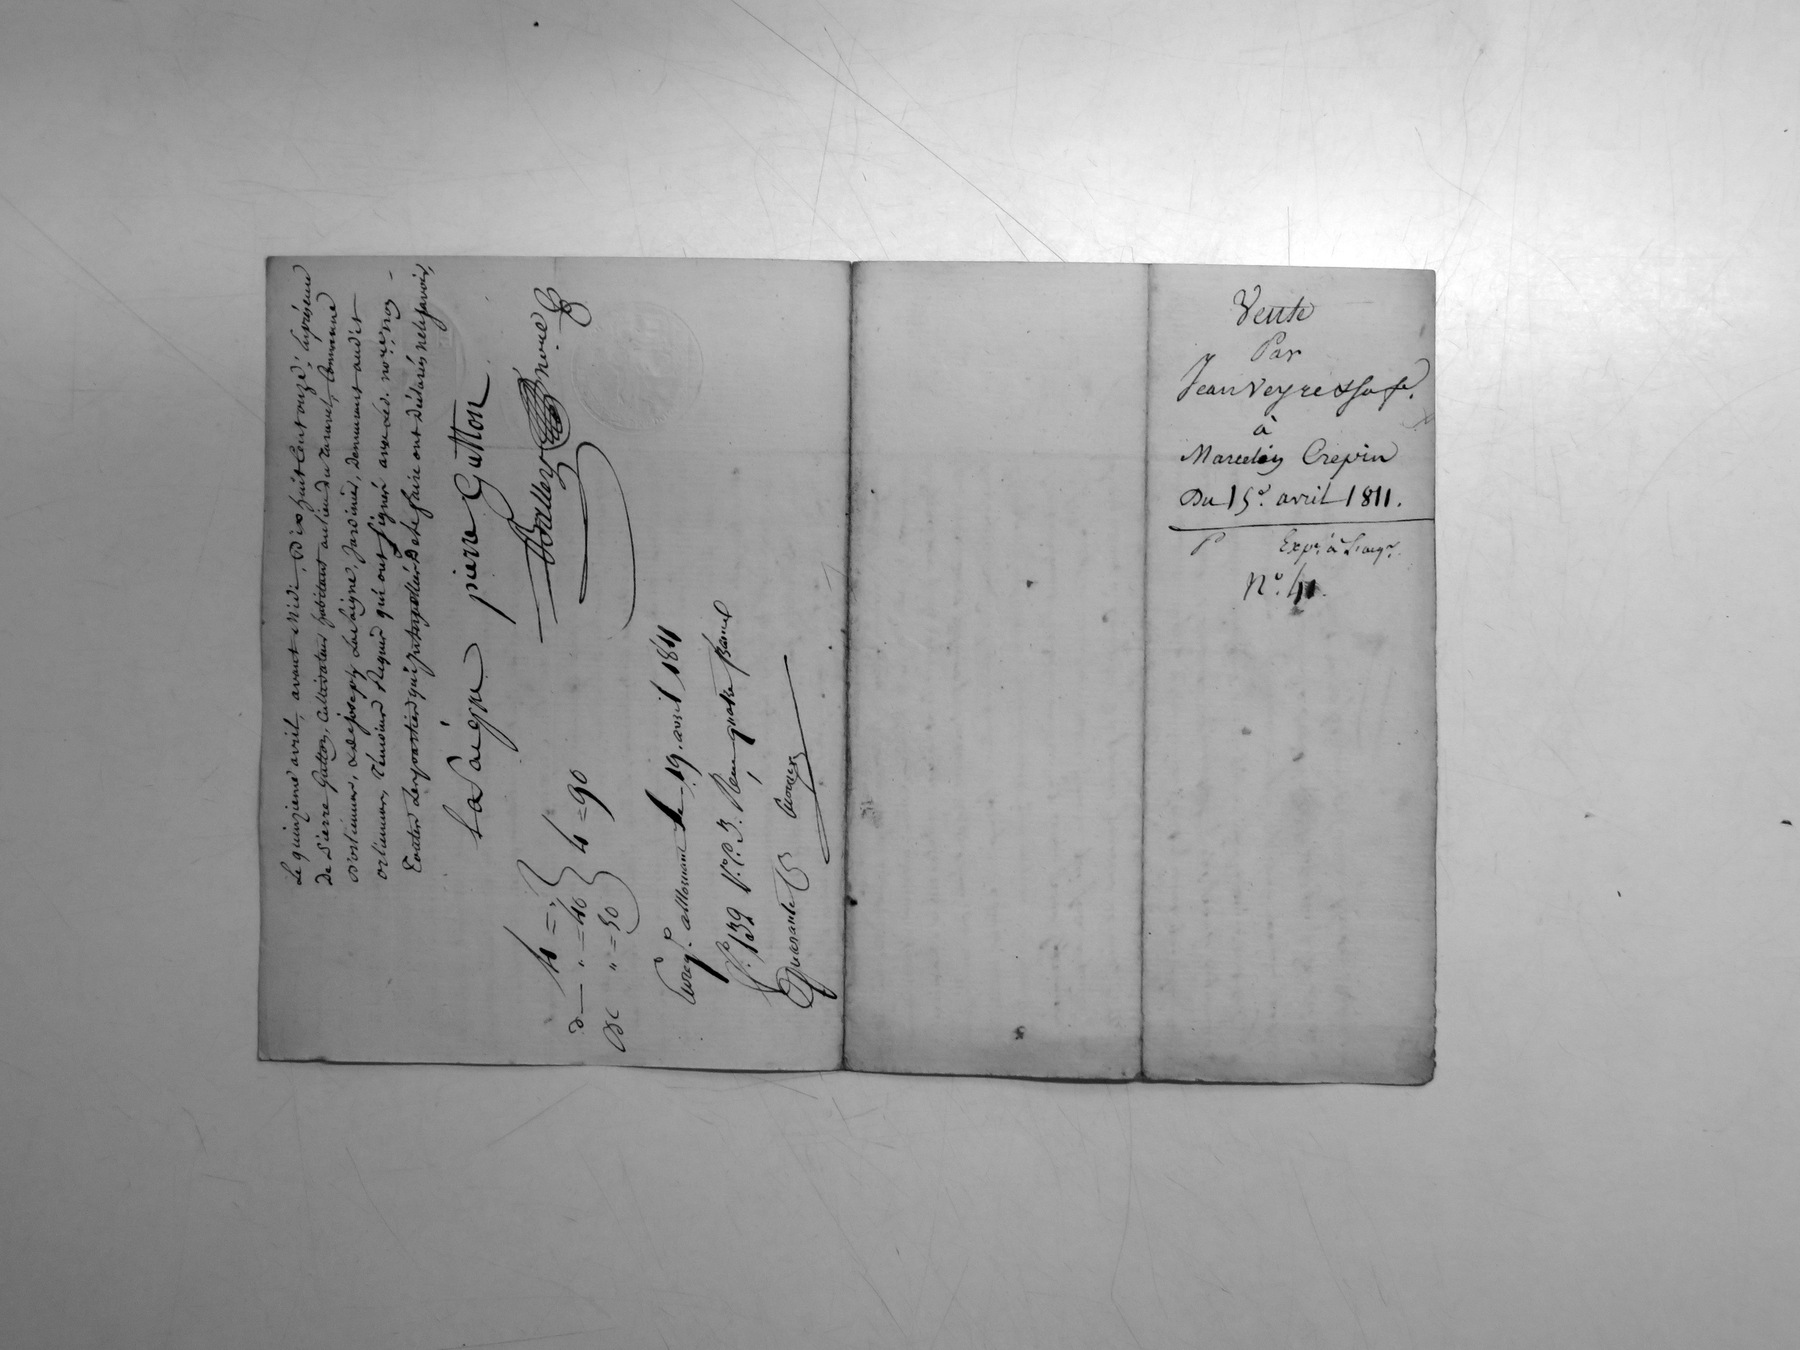 Le quinzieme avril, avant midi, dix huit cent onze, en présence
De Pierre Gutton, Cultivateur habitant au lieu du commune
& Joseph Lasaigne, Jardinier, demeurant audit
témoins Requis qui ont signé avec led. nore. non
Toutes les parties qui interpellées de le faire ont déclaré ne le savoir,
Lasaigne pierre Gutton
nore.
4 = "
d — " = 40 } 4 = 90
DC " = 50
Enreg. le 19. avril 1811
fo. 132 Vo. C. 3. Reçu quatre francs
Quarante
Vente
Par
Jean Veyre & sa fe.
à
Marcelin Crepin
Du 15e. avril 1811.
P Expe. à
No. 41.